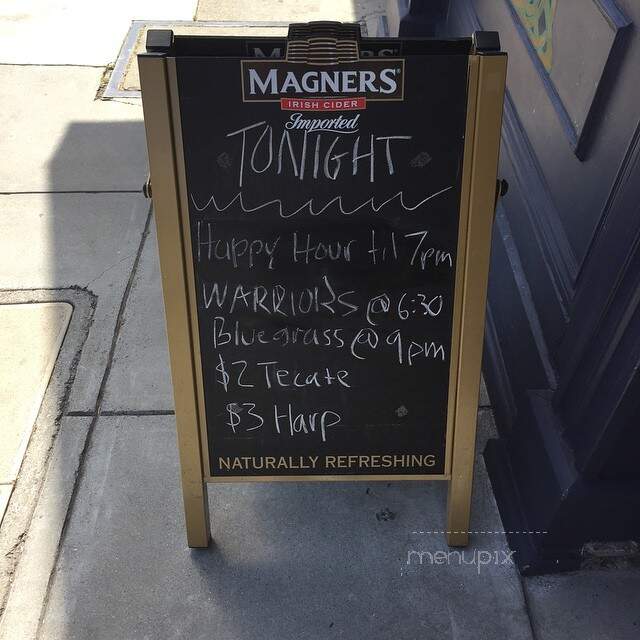 MAGNERS
IRISH CIDER
Imported
TONIGHT
Happy Hour til 7pm
WARRIORS @ 6:30
Bluegrass @ 9pm
$2 Tecate
$3 Harp
NATURALLY REFRESHING
menupix